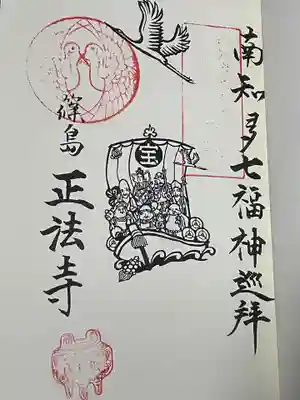 南知多七福神巡拝
宝
篠島
正法寺